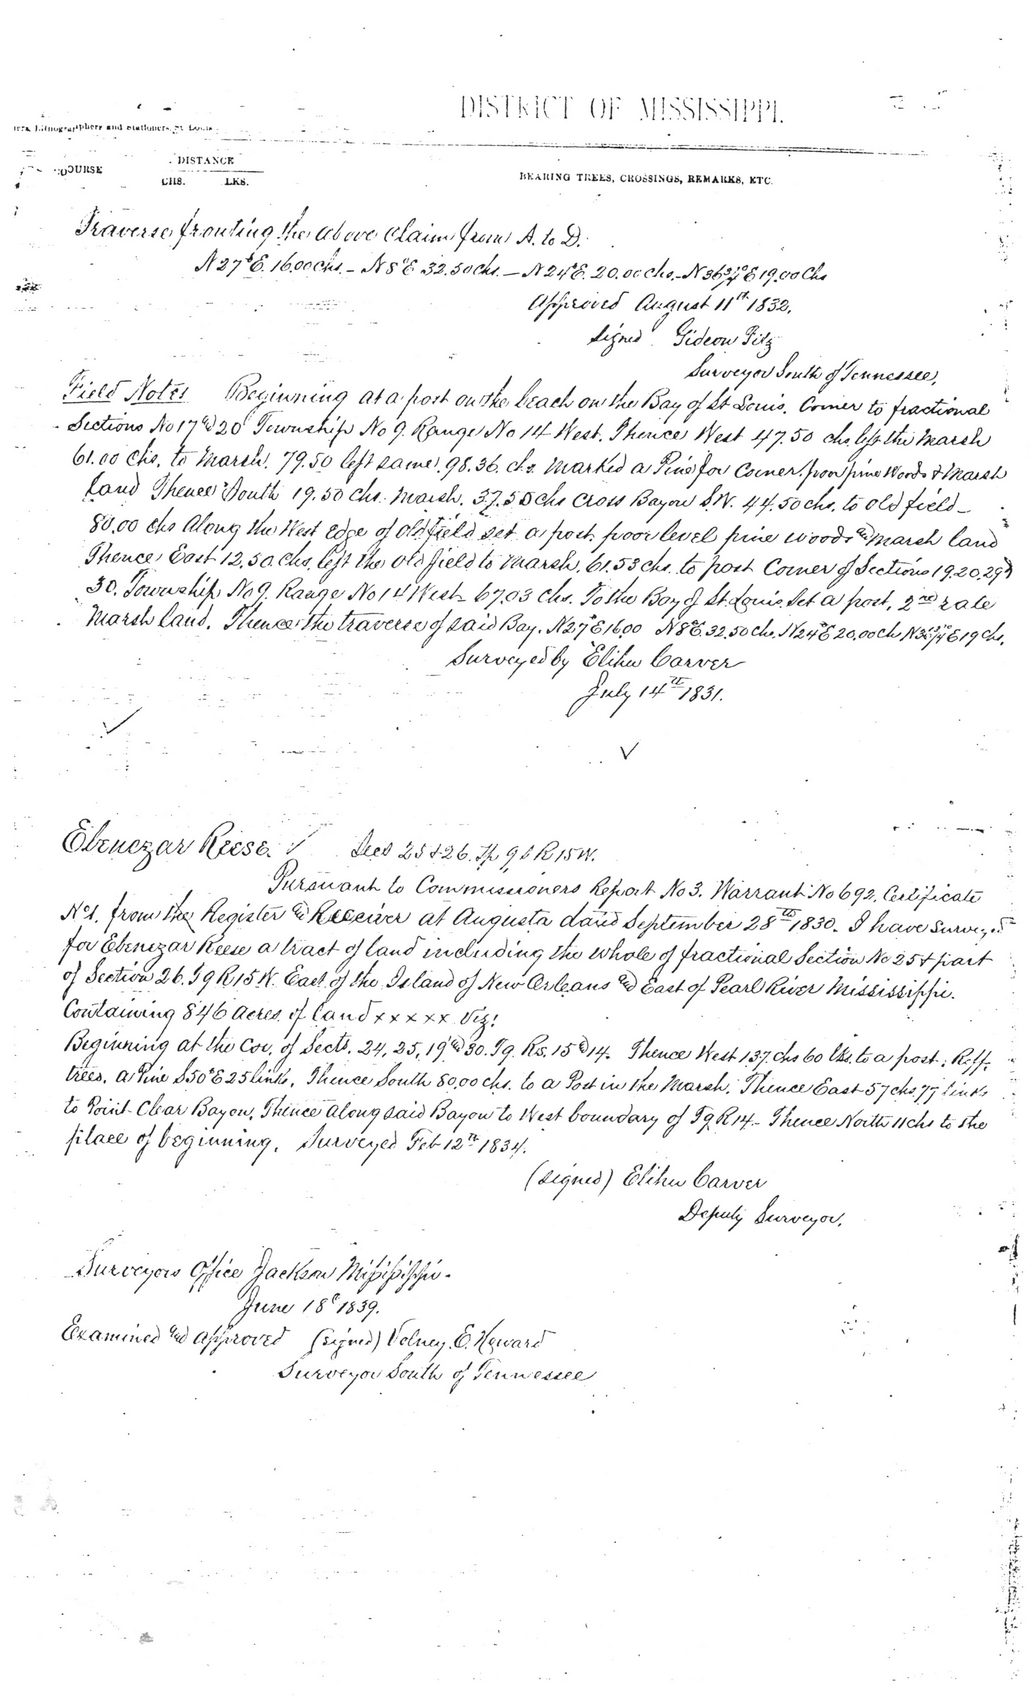 DISTRICT OF MISSISSIPPI.
Lithographers and Stationers, St. Louis
COURSE
DISTANCE
CHS. LKS.
BEARING TREES, CROSSINGS, REMARKS, ETC.
Traverse fronting the above claim from A. to D.
N 27° E. 16.00 chs. - N 8° E 32.50 chs. - N 24° E. 20.00 chs. - N 36 3/4° E 19.00 chs
Approved August 11th 1832.
Signed Gideon Fitz
Surveyor South of Tennessee.
Field Notes Beginning at a post on the beach on the Bay of St Louis. Corner to fractional
Sections No 17 & 20 Township No 9. Range No 14 West. Thence West 47.50 chs. left the Marsh
61.00 chs. to Marsh. 79.50 left same. 98.36. chs. Marked a Pine for Corner. poor pine Woods & Marsh
land Thence South 19.50 chs. Marsh. 37.50 chs cross Bayou S.W. 44.50 chs. to old field -
80.00 chs along the West edge of old field set a post. poor level pine woods & Marsh land
Thence East 12.50 chs. left the old field to Marsh. 61.53 chs. to post Corner of Sections 19.20.29 &
30. Township No 9. Range No 14 West - 67.03 chs. To the Bay of St. Louis Set a post, 2nd rate
Marsh land. Thence the traverse of said Bay. N 27° E 16.00 N 8° E. 32.50 chs. N 24° E 20.00 ch N 36 3/4° E 19 chs.
Surveyed by Elihu Carver
July 14th 1831.
Ebenezar Reese. Secs 25 & 26. Tp 9 S R 15 W.
Pursuant to Commissioners Report No 3. Warrant No 692. Certificate
No 1. from the Register & Receiver at Augusta dated September 28th 1830. I have surveyed
for Ebenezar Reese a tract of land including the whole of fractional Section No 25 & part
of Section 26. T 9 R 15 W. East of the Island of New Orleans & East of Pearl River Mississippi.
Containing 846 acres of land x x x x x Viz:
Beginning at the Cor. of Sects. 24, 25, 19 & 30. T 9. Rs. 15 & 14. Thence West 137 chs 60 lks. to a post: Reff.
trees. a Pine S 50° E 25 links. Thence South 80.00 chs. to a Post in the Marsh. Thence East 57 chs 77 links
to Point Clear Bayou. Thence along said Bayou to West boundary of T 9. R 14 - Thence North 11 chs to the
place of beginning. Surveyed Feb 12th 1834.
(signed) Elihu Carver
Deputy Surveyor.
Surveyors Office Jackson Mississippi -
June 18th 1839.
Examined and approved (signed) Volney. E. Howard
Surveyor South of Tennessee